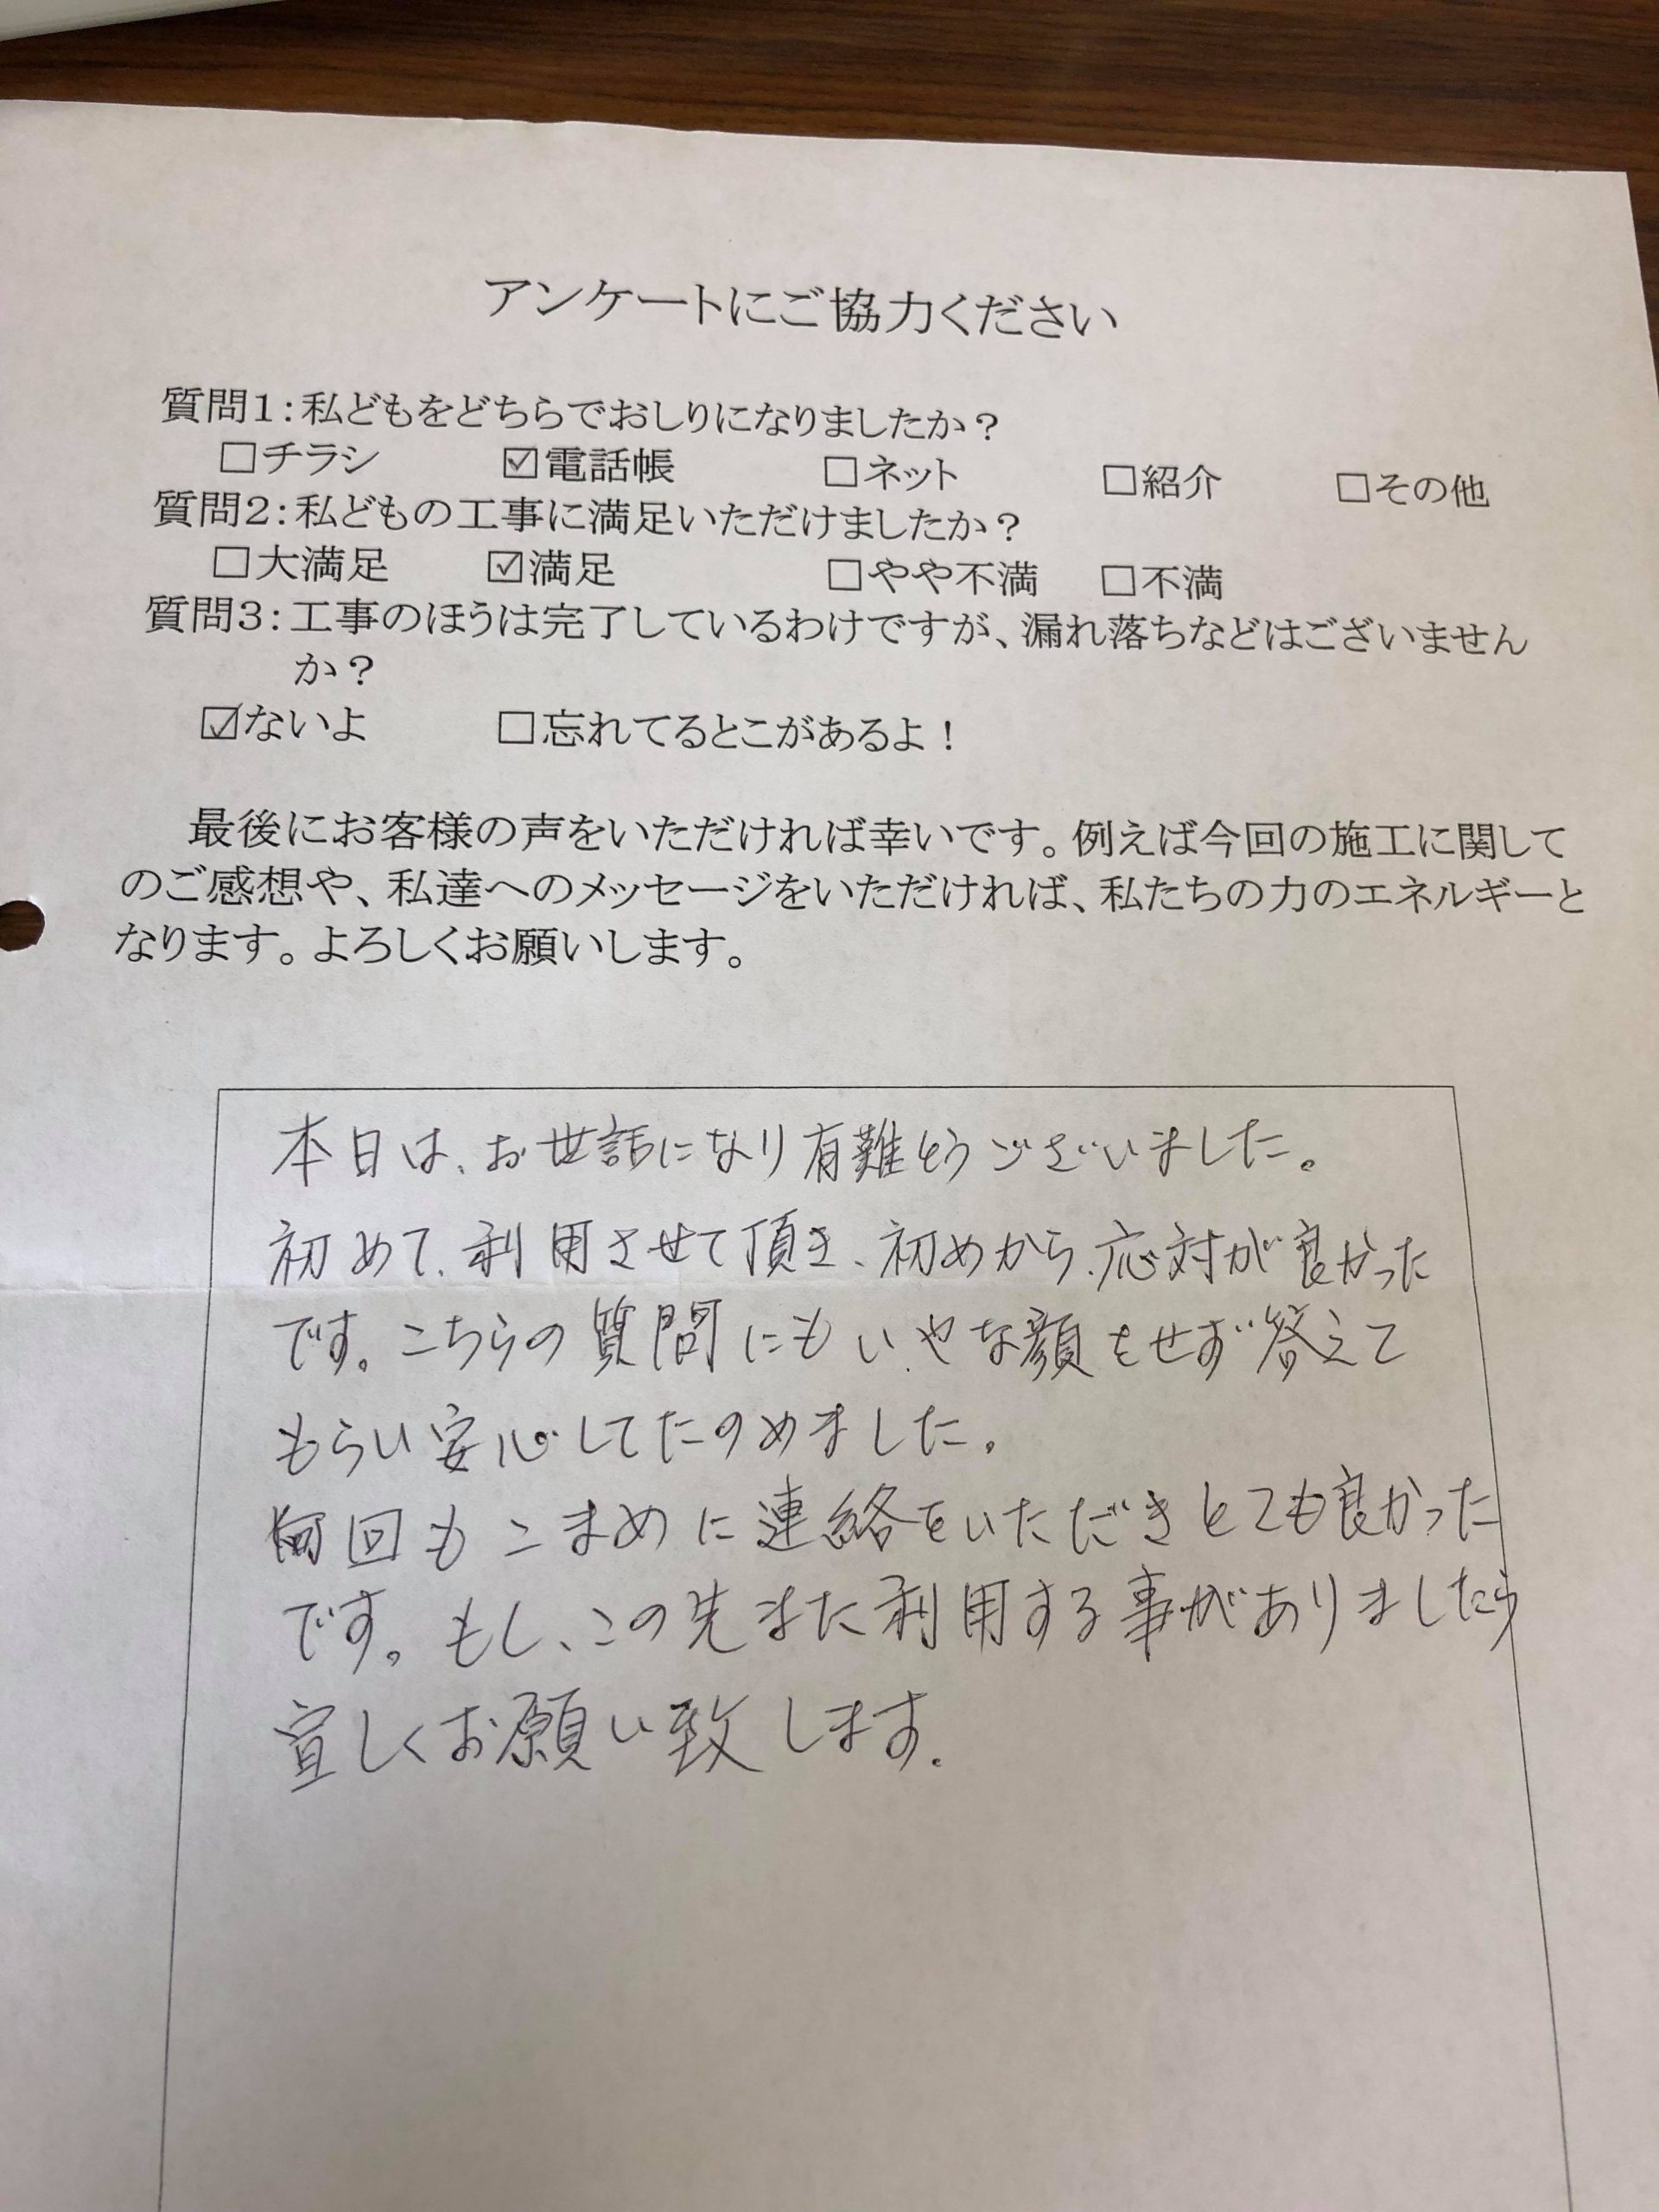 アンケートにご協力ください
質問1:私どもをどちらでおしりになりましたか？
□チラシ ☑電話帳 □ネット □紹介 □その他
質問2:私どもの工事に満足いただけましたか？
□大満足 ☑満足 □やや不満 □不満
質問3:工事のほうは完了しているわけですが、漏れ落ちなどはございません
か？
☑ないよ □忘れてるとこがあるよ！
最後にお客様の声をいただければ幸いです。例えば今回の施工に関して
のご感想や、私達へのメッセージをいただければ、私たちの力のエネルギーと
なります。よろしくお願いします。
本日は、お世話になり有難とうございました。
初めて、利用させて頂き、初めから、応対が良かった
です。こちらの質問にもいやな顔をせず答えて
もらい安心してたのめました。
何回もこまめに連絡をいただきとても良かった
です。もし、この先また利用する事がありましたら
宜しくお願い致します。